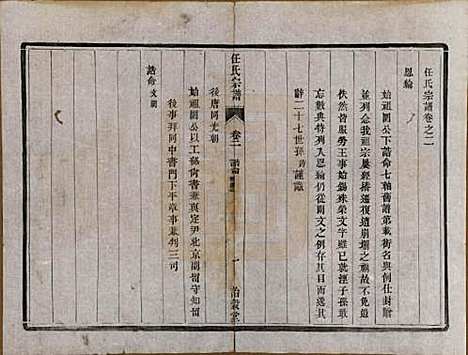 任氏宗譜卷之二
恩綸
始祖圜公下誥命七軸舊譜第載銜名與例仕封贈
並列念我祖宗屢經播遷復遭崩壞之禍故不免遺
依然皆服勞王事始錫殊榮文字雖已就湮子孫敢
忘數典特列入恩綸仍從闕文之例存其目而遞其
辭二十七世孫 謹識
後唐同光朝
始祖圜公以工部尚書兼真定尹北京副留守知留
後事拜同中書門下平章事兼判三司
誥命 文闕
任氏宗譜
卷二 誥命
一